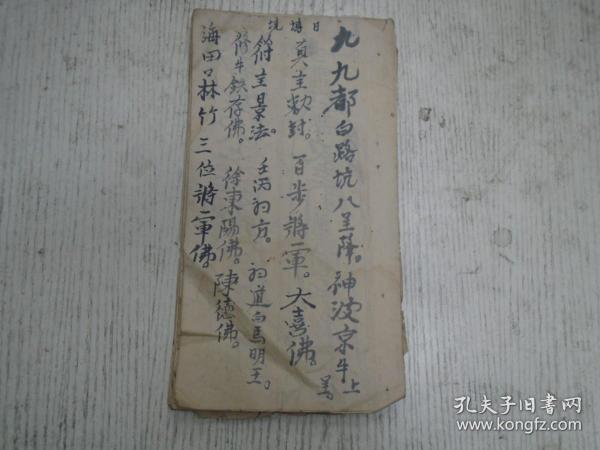 九九都白路坑八呈降。神波京牛上
日 塘 坑
真主敕封。百步將軍。大喜佛。
符主景法。壬丙初方。初道白馬明王。
修牛鉄存佛。徐東陽佛。陳德佛。
海田口林竹三位將軍佛。
孔夫子旧书网
www.kongfz.com